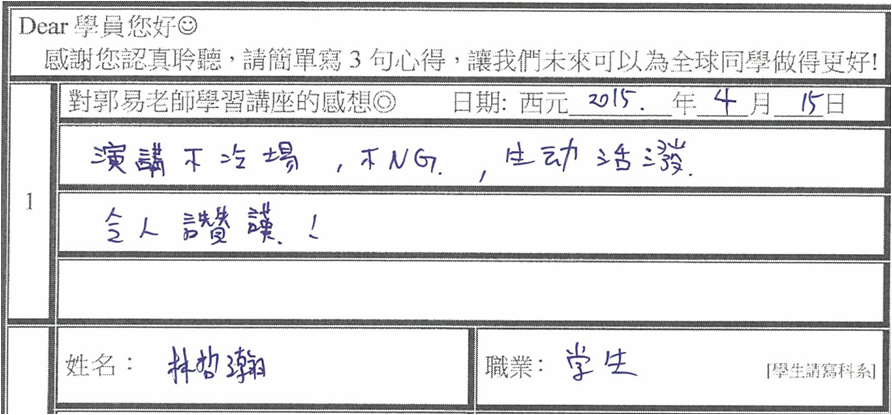 Dear 學員您好☺
感謝您認真聆聽，請簡單寫 3 句心得，讓我們未來可以為全球同學做得更好!
1
對郭易老師學習講座的感想◎ 日期: 西元 2015. 年 4 月 15 日
演講不冷場，不NG.，生动活潑.
令人讚謹.！
姓名： 林哲瀚 職業： 学生 [學生請寫科系]